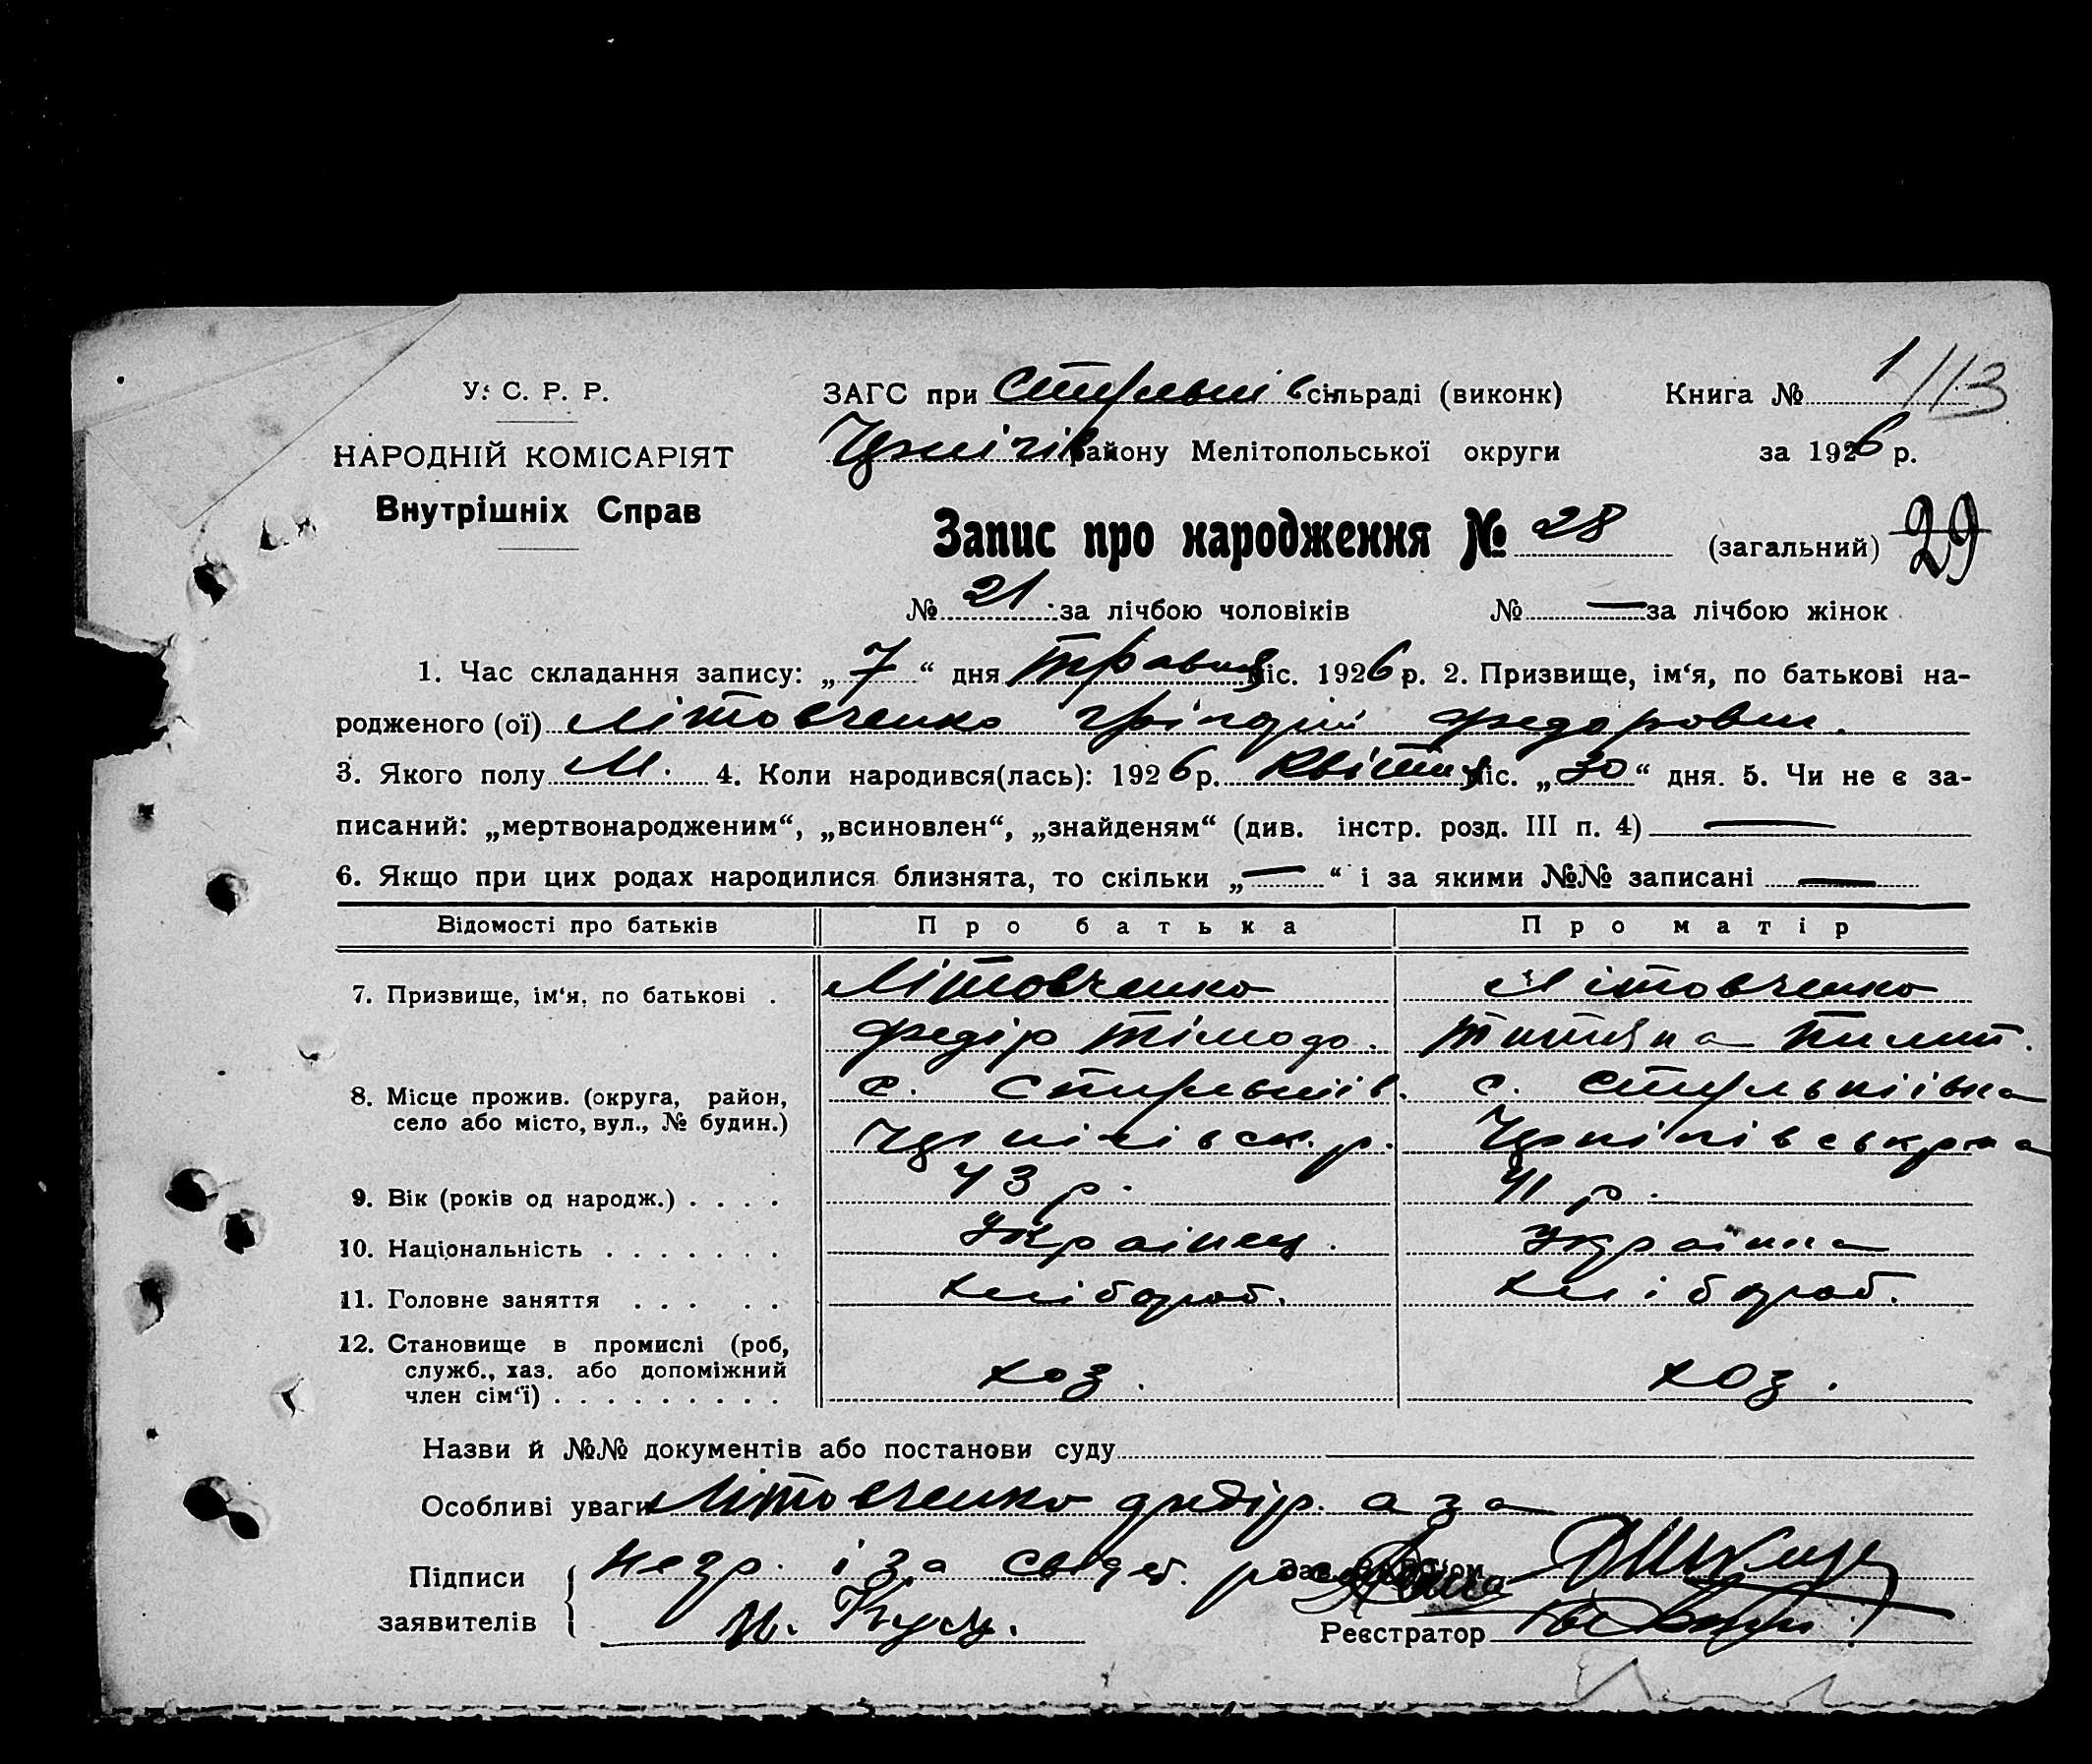 У. С. Р. Р.
НАРОДНІЙ КОМІСАРІЯТ
Внутрішніх Справ
ЗАГС при сільраді (виконк)
району Мелітопольської округи
Книга № 1 113
за 1926 р.
Запис про народження № 28 (загальний) 29
№ 21 за лічбою чоловіків № — за лічбою жінок
1. Час складання запису: „7“ дня травня міс. 1926 р. 2. Призвище, ім‘я, по батькові на-
родженого (ої) Літовченко Грігорій Федорович
3. Якого полу М. 4. Коли народився(лась): 1926 р. Квітня міс. „30“ дня. 5. Чи не є за-
писаний: „мертвонародженим“, „всиновлен“, „знайденям“ (див. інстр. розд. III п. 4) —
6. Якщо при цих родах народилися близнята, то скільки „—“ і за якими №№ записані —
Відомості про батьків Про батька Про матір
7. Призвище, ім‘я, по батькові . Літовченко Літовченко
Федір Тімофо. Титяна Пилип.
8. Місце прожив. (округа, район, с. с.
село або місто, вул., № будин.)
9. Вік (років од народж.) . . . . 43 р. 41 р.
10. Національність . . . . . . . Українец. Українка
11. Головне заняття . . . . . хлібороб. хлібороб.
12. Становище в промислі (роб,
служб., хаз. або допоміжний хоз. хоз.
член сім‘ї) . . . . . . . . .
Назви й №№ документів або постанови суду
Особливі уваги Літовченко Федір. а за
Підписи негр. і за свідет.
заявителів И. Куц.
Реєстратор